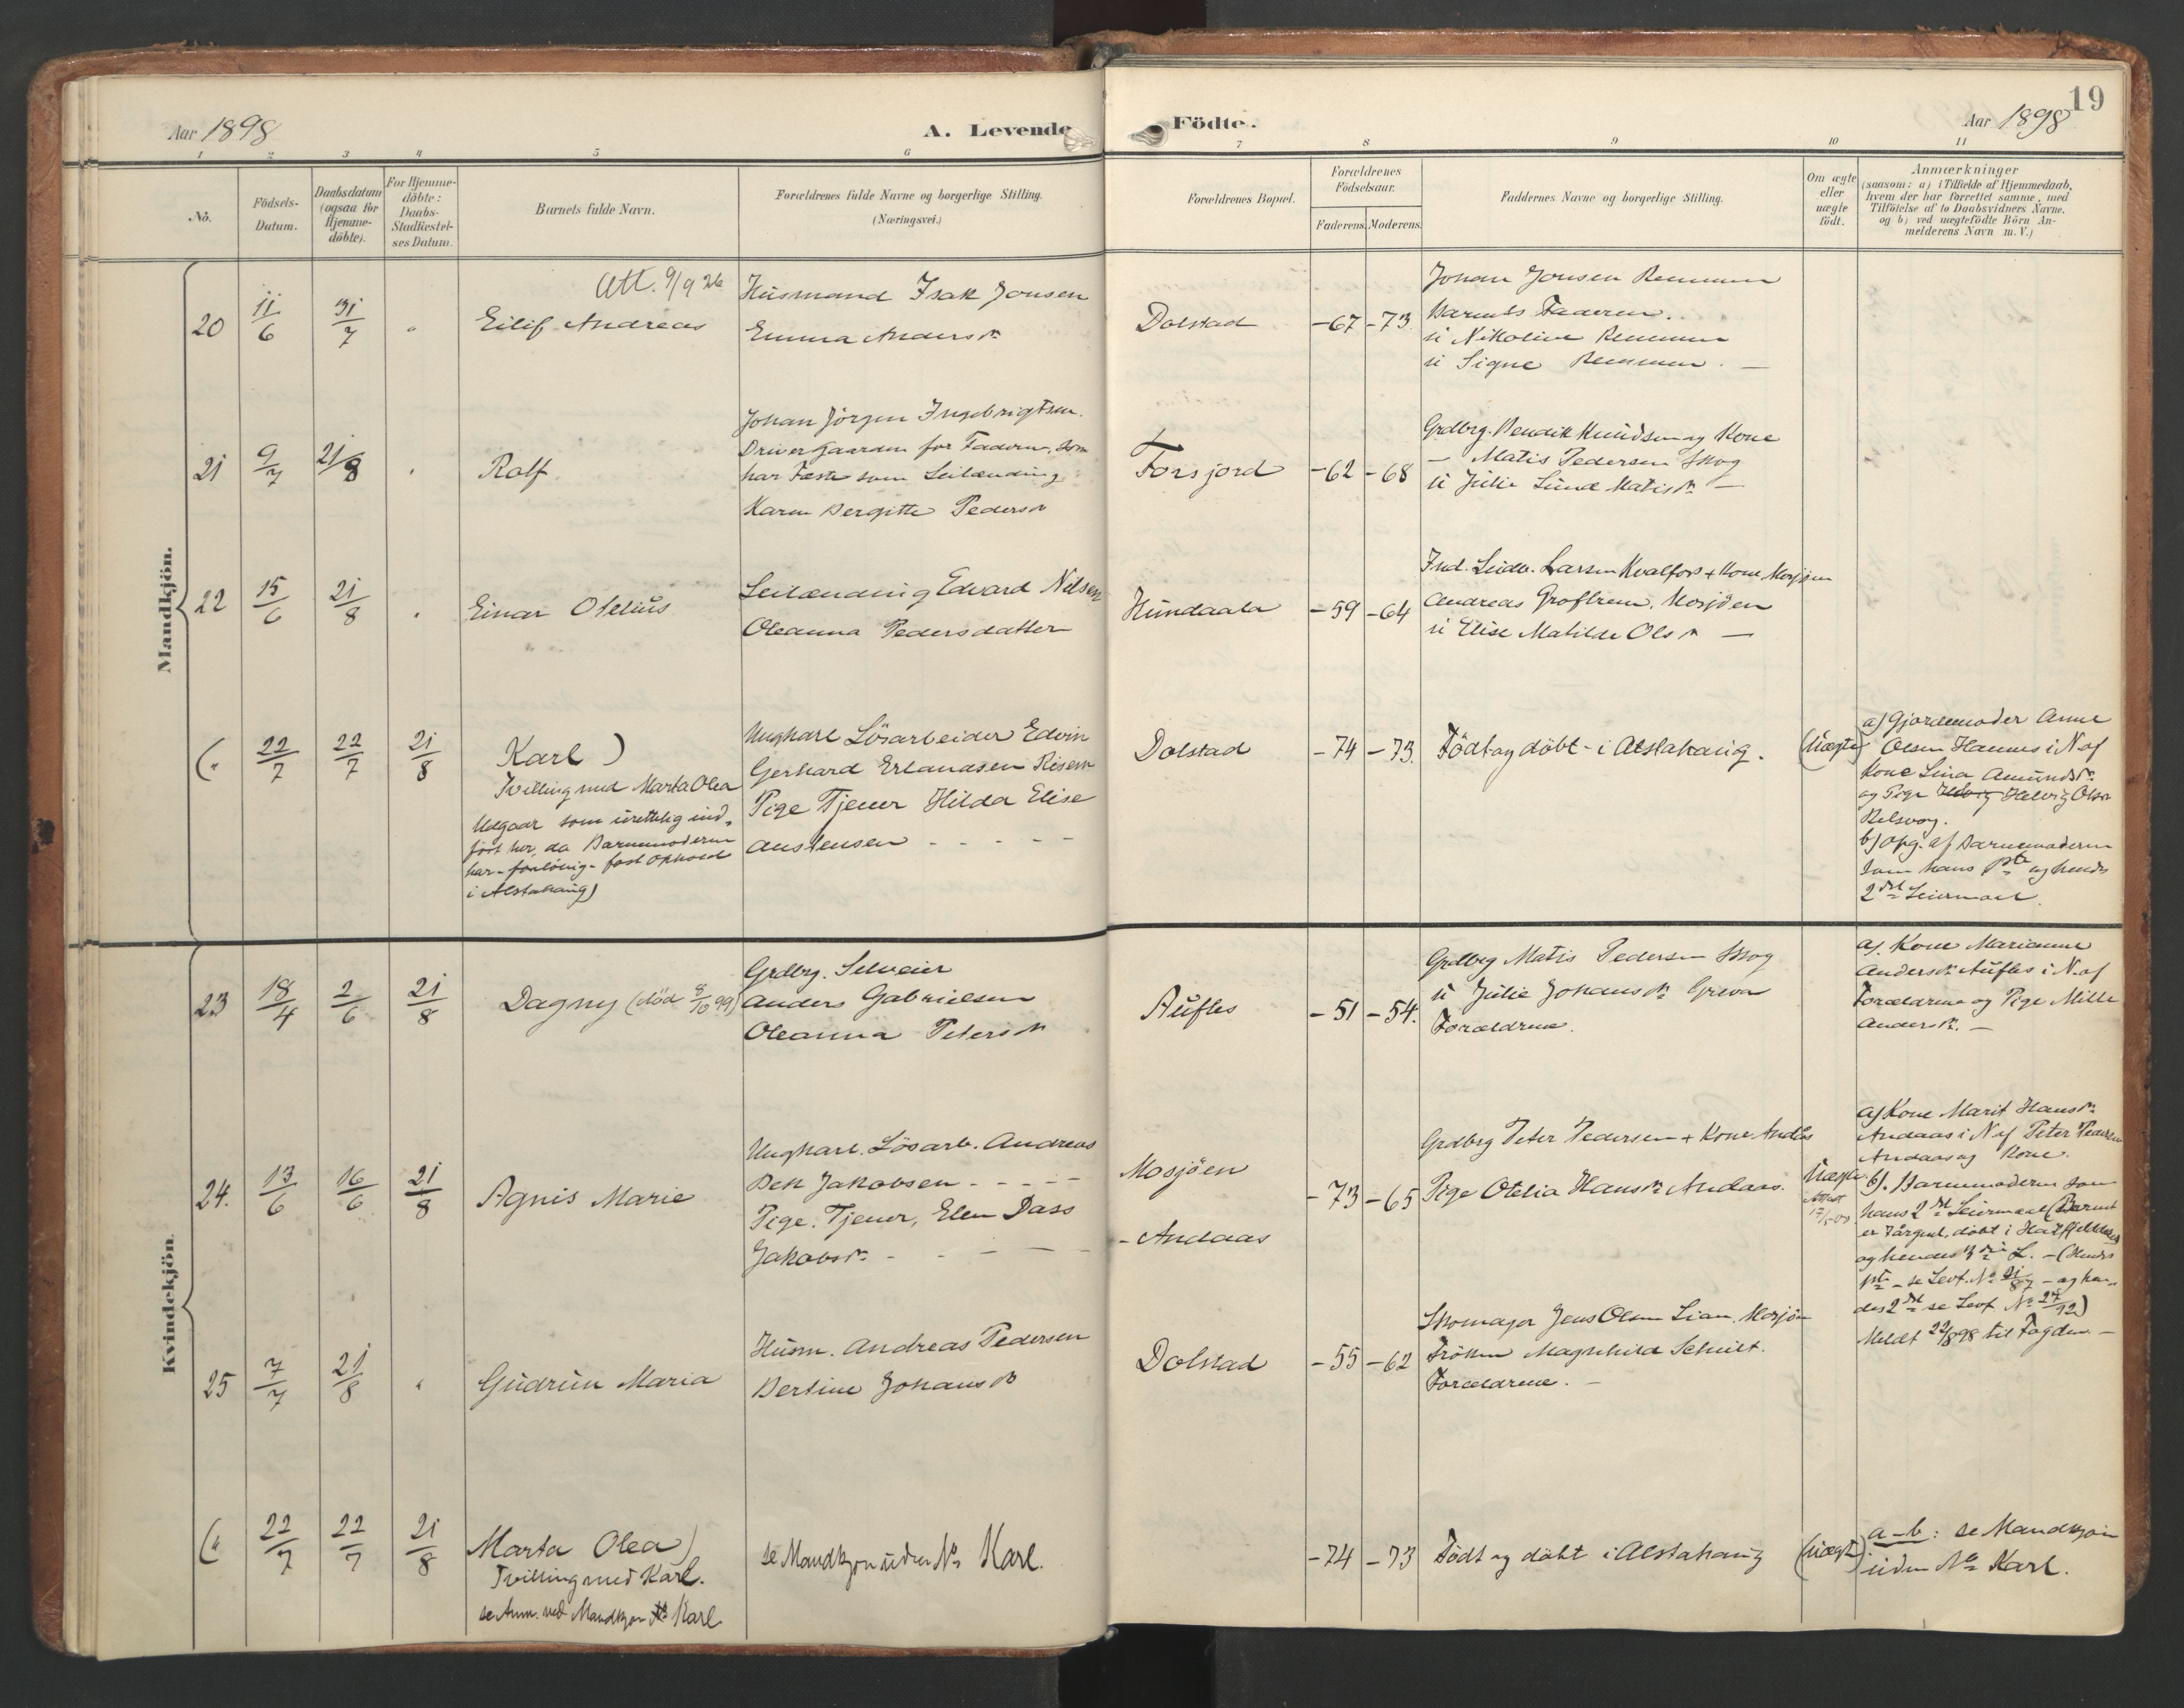 Aar 1898
A. Levende
Fødte.
Aar 1898
19
1 2 3 4 5 6 7 8 9 10 11
No.
Födsels-
Datum.
Daabsdatum
(ogsaa for
Hjemme-
döbte).
For Hjemme-
döbte:
Daabs-
Stadfæstel-
ses Datum.
Barnets fulde Navn.
Forældrenes fulde Navne og borgerlige Stilling.
(Næringsvei.)
Forældrenes Bopæl.
Forældrenes
Födselsaar.
Faderens. Moderens.
Faddernes Navne og borgerlige Stilling.
Om ægte
eller
uægte
födt.
Anmærkninger
(saasom: a) i Tilfælde af Hjemmedaab,
hvem der har forrettet samme, med
Tilföielse af to Daabsvidners Navne.
og b) ved uægtefödte Börn An-
melderens Navn m. V.)
Mandkjön.
20
11/6
31/7
"
Att. 9/9 26
Eilif Andreas
Husmand Isak Jonsen
Emma Andersdr
Dolstad
-67 -73.
Johan Jonsen Remmen
Barnets Faderen.
u Nikoline Remmen
u Signe Remmen. —
21
9/7
21/8
"
Rolf
Johan Jörgen Ingebrigtsen.
Driver Gaarden for Faderen, som
har Fæste som Leilænding
Karen Bergitte Pedersdr
Forsjord
-62 -68
Grdbrg. Bendik Knudsen og Kone
— Matis Pedersen Skog
u Julie Lund Matisdr —
22
15/6
21/8
"
Einar Otelius
Leilænding Edvard Nilsen
Oleanna Pedersdatter
Hundaala
-59 -64
Ind. Ludv. Larsen Kvalfors + Kone Mosjöen
Andreas Groftrem, Mosjöen
u Elise Matilde Olsdr —
("
22/7
22/7
21/8
Karl)
Tvilling med Marta Olea
Udgaar som urettelig ind-
fört her, da Barnemoderen
har - forlövig - fast Ophold
i Alstahaug)
Ungkarl Lösarbeider Edvin
Gerhard Erlandsen Risem
Pige Tjener Hilda Elise
Austensen - - - -
Dolstad
-74 -73.
Födt og döbt i Alstahaug.
(Uægte)
a) Gjordemoder Anne
Olsen Hannes i N. af
Kone Lina Amundsdr.
og Pige Helvig Olsdr
Belsvog.
b) Opg. af Barnemoderen
som hans 1ste og hendes
2det Leiermaal.
Kvindekjön.
23
18/4
2/6
21/8
Dagny (död 8/10 99)
Grdbrg. Selveier
Anders Gabrielsen
Oleanna Petersdr
Aufles
-51 -54.
Grdbrg Matis Pedersen Skog
u Julie Johansdr Greva
Forældrene.
a). Kone Marianne
Andersdr Aufles i N. af
Forældrene og Pige Mille
Andersdr. —
24.
13/6
16/6
21/8
Agnis Marie
Ungkarl. Lösarb. Andreas
Bek Jakobsen - - - -
Pige. Tjener, Elen Dass
Jakobsdr. - - - -
Mosjöen
- Andaas
-73 -65
Grdbrg Peter Pedersen + Kone Andås
Pige Otelia Hansdr Andaas.
Uægte
a) Kone Marit Hansdr.
Andaas i N. af Peter Pedersen
Andaas og Kone.
b). Barnemoderen som
hans 2det Leiermaal (Barnet
döbt i Hatfjelddalen
og hendes 3die L. — (Hendes
1ste - se Levf. No 21/87 - og hen-
des 2det se Levf No 27/92)
Meldt 22/8 98 til Fogden —
25
7/7
21/8
"
Gudrun Maria
Husm. Andreas Pedersen
Bertine Johansdr
Dolstad
-55 -62
Skomager Jens Olsen Lian, Mosjöen
Fröken Magnhild Schult.
Forældrene. —
("
22/7
22/7
21/8
Marta Olea)
Tvilling med Karl.
se Anm. ved Mandkjön No Karl
se Mandkjön uden No Karl.
-74 -73
Födt og döbt i Alstahaug
(Uægte)
a-b: se Mandkjön
uden No Karl.